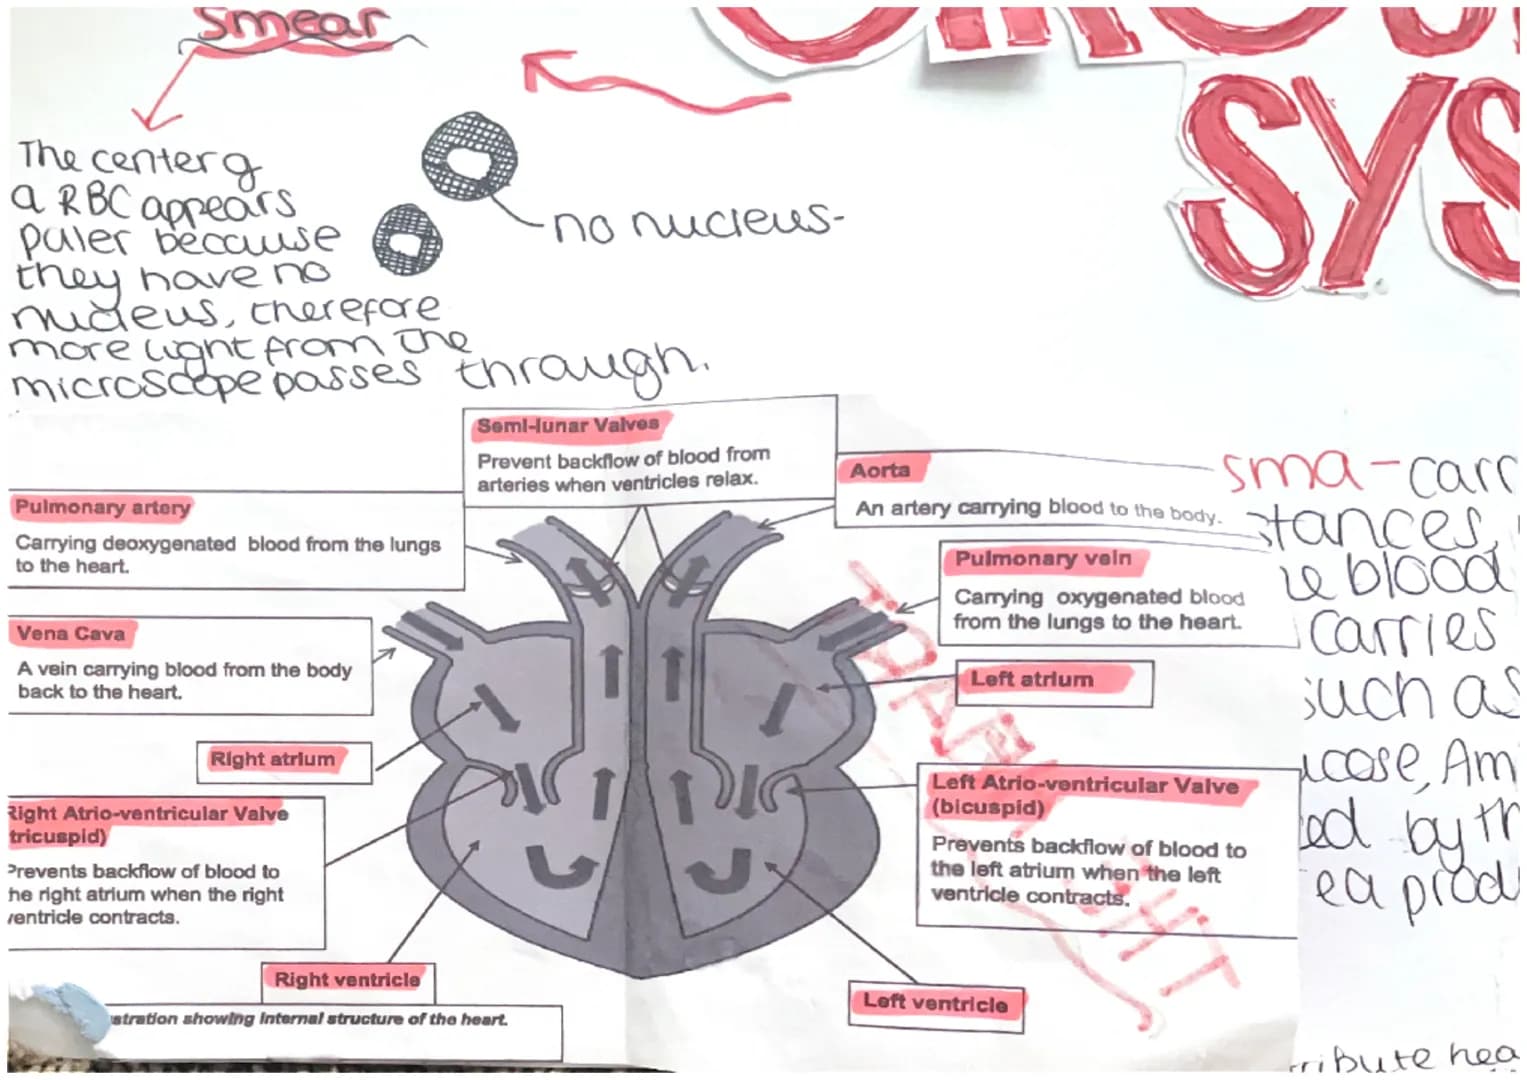 smear
SYS
The center of
a RBC appears
paler because
they have no
nucleus, therefore
more light from the
microscope passes through.
no nucleus-
Semi-lunar Valves
Prevent backflow of blood from
arteries when ventricles relax.
Aorta
An artery carrying blood to the body.
Pulmonary artery
Carrying deoxygenated blood from the lungs
to the heart.
Pulmonary vein
Carrying oxygenated blood
from the lungs to the heart.
Vena Cava
A vein carrying blood from the body
back to the heart.
Left atrium
Right atrium
Left Atrio-ventricular Valve
(bicuspid)
Prevents backflow of blood to
the left atrium when the left
ventricle contracts.
Right Atrio-ventricular Valve
tricuspid)
Prevents backflow of blood to
he right atrium when the right
ventricle contracts.
Right ventricle
Left ventricle
stration showing internal structure of the heart.
sma - carr
stances,
blood
carries
such as
ucose, Am
ed by th
ea prod
ribute hea